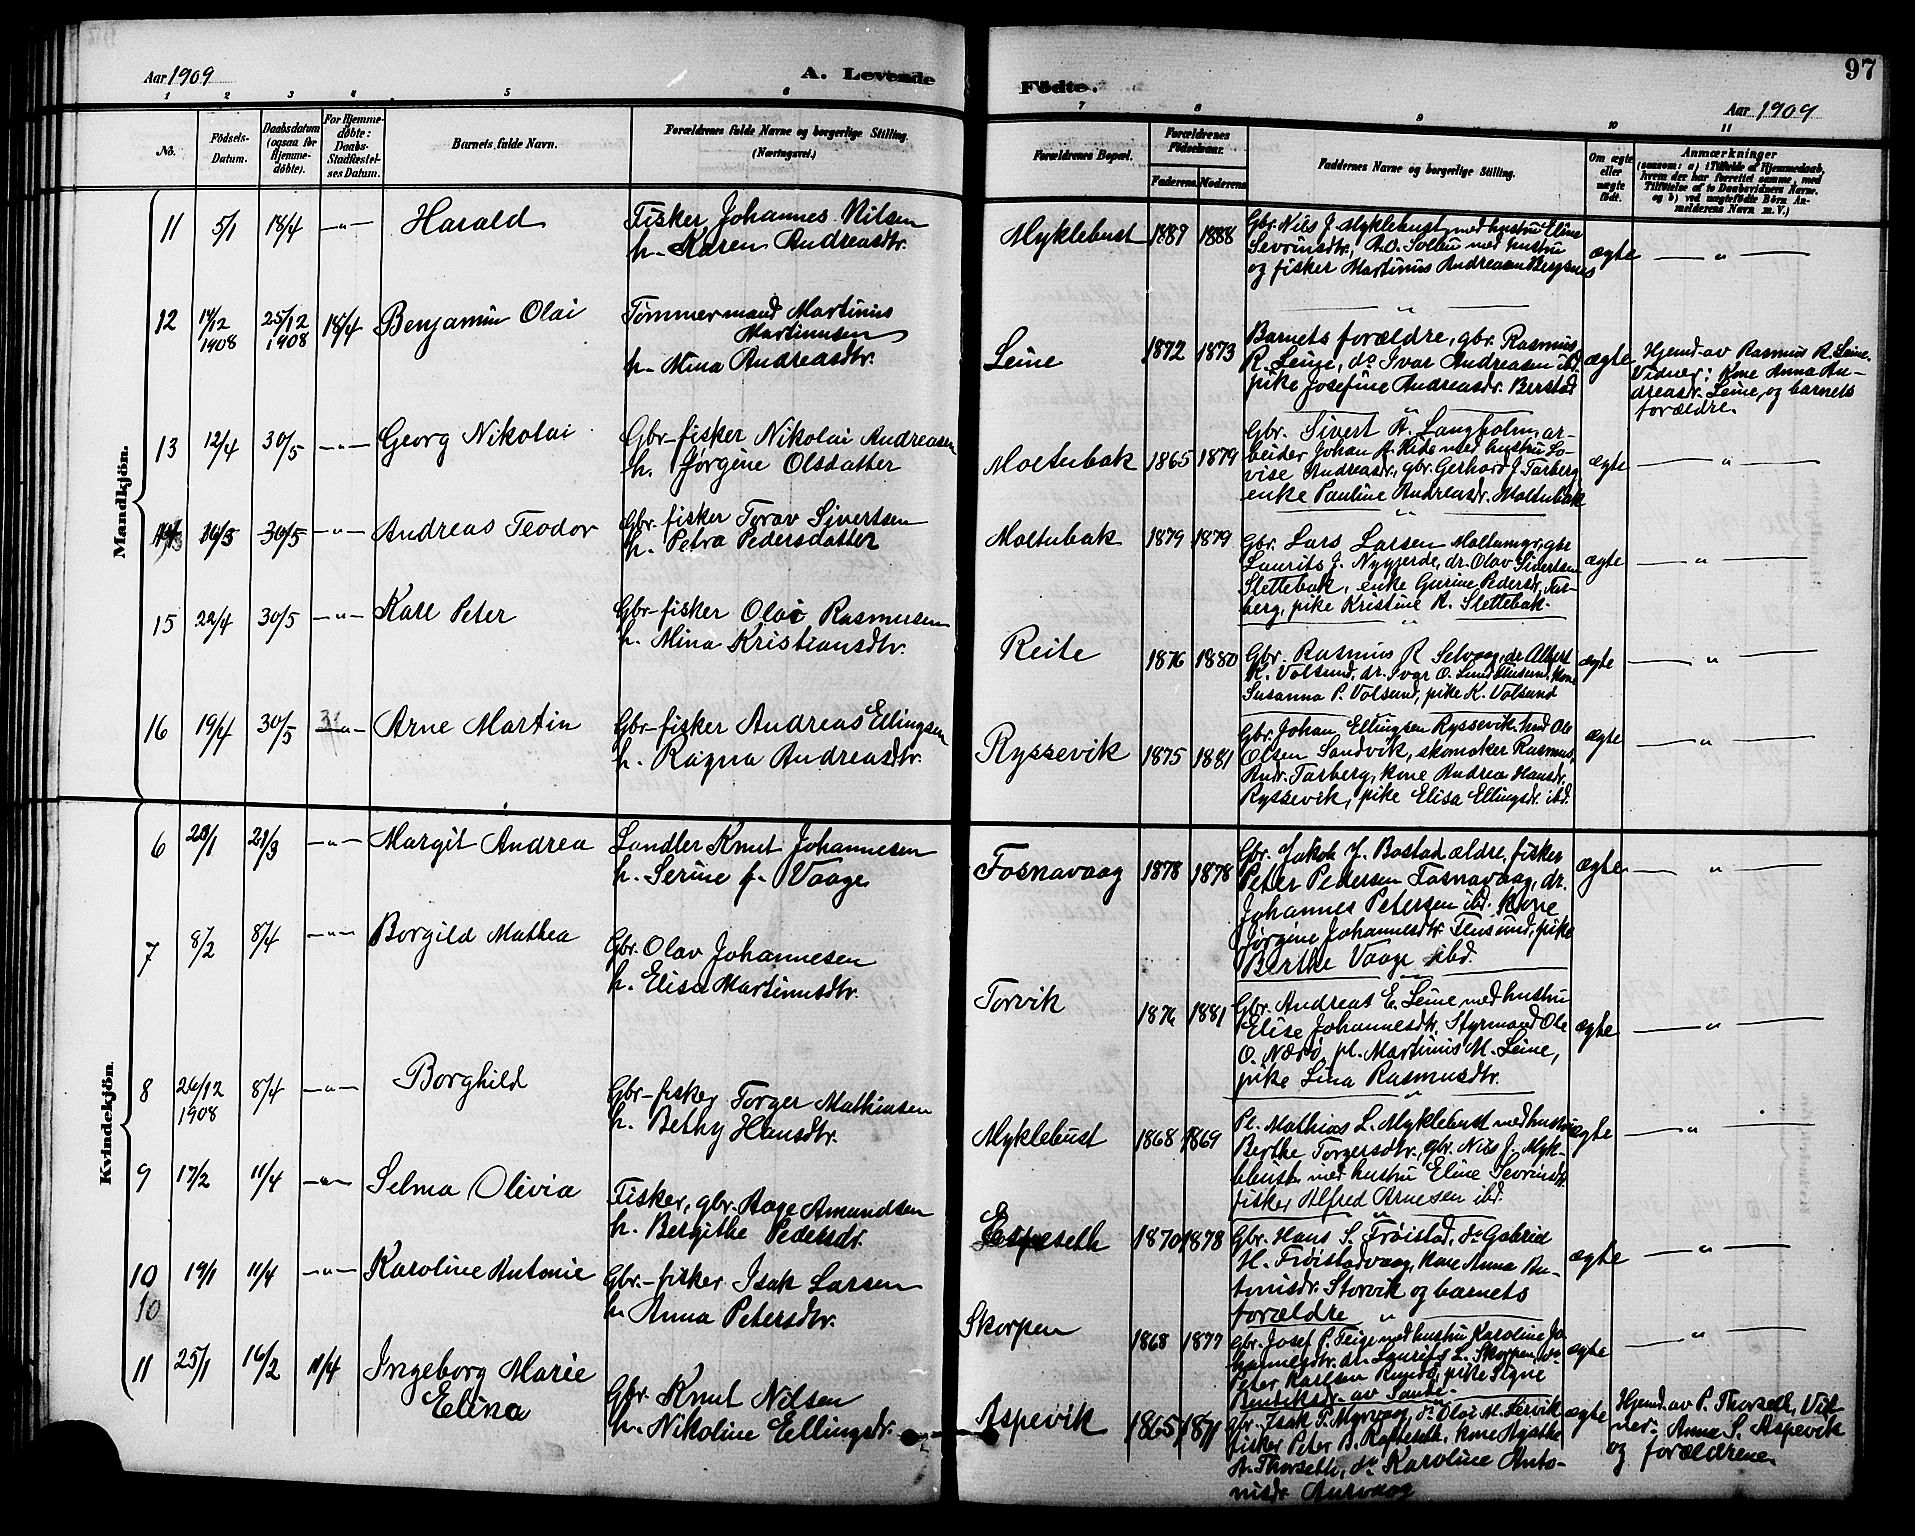 Aar 1909
A. Levende
Fødte.
97
Aar 1909
1 2 3 4 5 6 7 8 9 10 11
No.
Fødsels-
Datum.
Daabsdatum
(ogsaa for
Hjemme-
døbte).
For Hjemme-
døbte:
Daabs-
Stadfæstel-
ses Datum.
Barnets fulde Navn.
Forældrenes fulde Navne og borgerlige Stilling.
(Næringsvei.)
Forældrenes Bopæl.
Forældrenes
Fødselsaar.
Faderens
Moderens
Faddernes Navne og borgerlige Stilling.
Om ægte
eller
uægte
født.
Anmærkninger
(saasom: a) i Tilfælde af Hjemmedaab,
hvem der har forrettet samme, med
Tilføielse af to Daabsvidners Navne,
og b) ved uægtefødte Børn An-
melderens Navn m. V.)
Mandkjön.
11 5/1 18/4 -"- Harald
Fisker Johannes Nilsen
h. Karen Andreasdtr.
Myklebust 1887 1888
Gbr. Nils J. Myklebust med hustru Eline
Sevrinsdtr., A.O. Solbu med hustru
og fisker Martinus Andreassen Bergsnes
ægte — " —
12 14/12 1908 25/12 1908 18/4 Benjamin Olai
Tømmermand Martinus
Martinusen
h. Mina Andreasdtr.
Leine 1872 1873
Barnets forældre, gbr. Rasmus
R. Leine, do Ivar Andreasen ibd.
pike Josefine Andreasdr. Berstad
ægte
Hjemd. av Rasmus R. Leine.
Vidner: Kone Anna An-
dreasdr. Leine, og barnets
forældre.
13 12/4 30/5 -"- Georg Nikolai
Gbr-fisker Nikolai Andreasen
h. Jørgine Olsdatter
Moltubak 1865 1879
Gbr. Sivert A. Langholm, ar-
beider Johan A. Eide med hustru Lo-
vise Andreasdr., gbr. Gerhard J. Tarberg
enke Pauline Andreasdr. Moltubak
ægte — " —
14 16/3 30/5 -"- Andreas Teodor
Gbr. fisker Torav Sivertsen
h. Petra Pedersdatter
Moltubak 1879 1879
Gbr. Lars Larsen Moltumyr, gbr
Laurits J. Nygjerde, dr. Olav Sivertsen
Slettebak, enke Gurine Pedersd. Tar-
berg, pike Kristine A. Slettebak.
ægte — " —
15 22/4 30/5 -"- Karl Peter
Gbr-fisker Olai Rasmusen
h. Mina Kristiansdtr.
Reite 1876 1880
Gbr. Rasmus R Selvaag, dr. Albert
K. Volsund, dr. Ivar O. Lund Flusund, kone
Susanna P. Volsund, pike K. Volsund
ægte — " —
16 19/4 30/5 -"- Arne Martin
Gbr-fisker Andreas Ellingsen
h. Ragna Andreasdtr.
Ryssevik 1875 1881
Gbr. Johan Ellingsen Ryssevik, Ole
Olsen Sandvik, skomaker Rasmus
Andr. Tarberg, kone Andrea Hansdr.
Ryssevik, pike Elisa Ellingsdr. ibd.
ægte — " —
Kvindekjön.
6 23/1 21/3 -"- Margit Andrea
Landler Knut Johannesen
h. Serine f. Vaage
Fosnavaag 1878 1878
Gbr. Jakob J. Bostad ældre, fisker
Peter Pedersen Fosnavaag, dr.
Johannes Petersen ibd. Kone
Jørgine Johannesdtr. Flusund, pike
Berthe Vaage ibd.
ægte — " —
7 8/2 8/4 -"- Borgild Mathea
Gbr. Olav Johannesen
h. Elisa Martinusdtr.
Torvik 1876 1881
Gbr. Andreas E. Leine med hustru
Elise Johannesdtr. Styrmand Ole
O. Nærø, pl. Martinus M. Leine,
pike Lina Rasmusdtr.
ægte — " —
8 26/12 1908 8/4 -"- Borghild
Gbr-fisker Torger Mathiasen
h. Bethy Hansdtr.
Myklebust 1868 1869
Pl. Mathias L. Myklebust med hustru
Berthe Torgersdtr., gbr. Nils J. Myk-
lebust med hustru Eline Sevrinsdtr.
fisker Alfred Arnesen ibd.
ægte — " —
9 17/2 11/4 -"- Selma Olivia
Fisker, gbr. Aage Amundsen
h. Bergithe Pedersdr.
Espeseth 1870 1878
Gbr. Hans S. Frøistad, do Gabriel
H. Frøistadvaag, kone Anna An-
tonisdr. Storvik og barnets
forældre
ægte — " —
10 19/1 11/4 -"- Karoline Antonie
10
Gbr-fisker Isak Larsen
h. Anna Petersdtr.
Skorpen 1868 1877
Gbr. Josef P. Teige med hustru Karoline Jo
hannesdtr. dr. Laurits L. Skorpen, do
Peter Karlsen Runde, pike Signe
Bendiksdr. av Sande
ægte — " —
11 25/1 16/2 11/4 Ingeborg Marie
Elina
Gbr. Knut Nilsen
h. Nikoline Ellingsdr.
Aspevik 1865 1871
Gbr. Isak T. Myrvaag, do Olai M. Lervik
fisker Peter A. Kopleseth, kone Agathe
A. Thorseth, do Karoline Anto-
nisdr. Aurvaag
ægte
Hjemd. av P. Thorseth. Vid-
ner. Anne S. Aspevik
og forældrene.